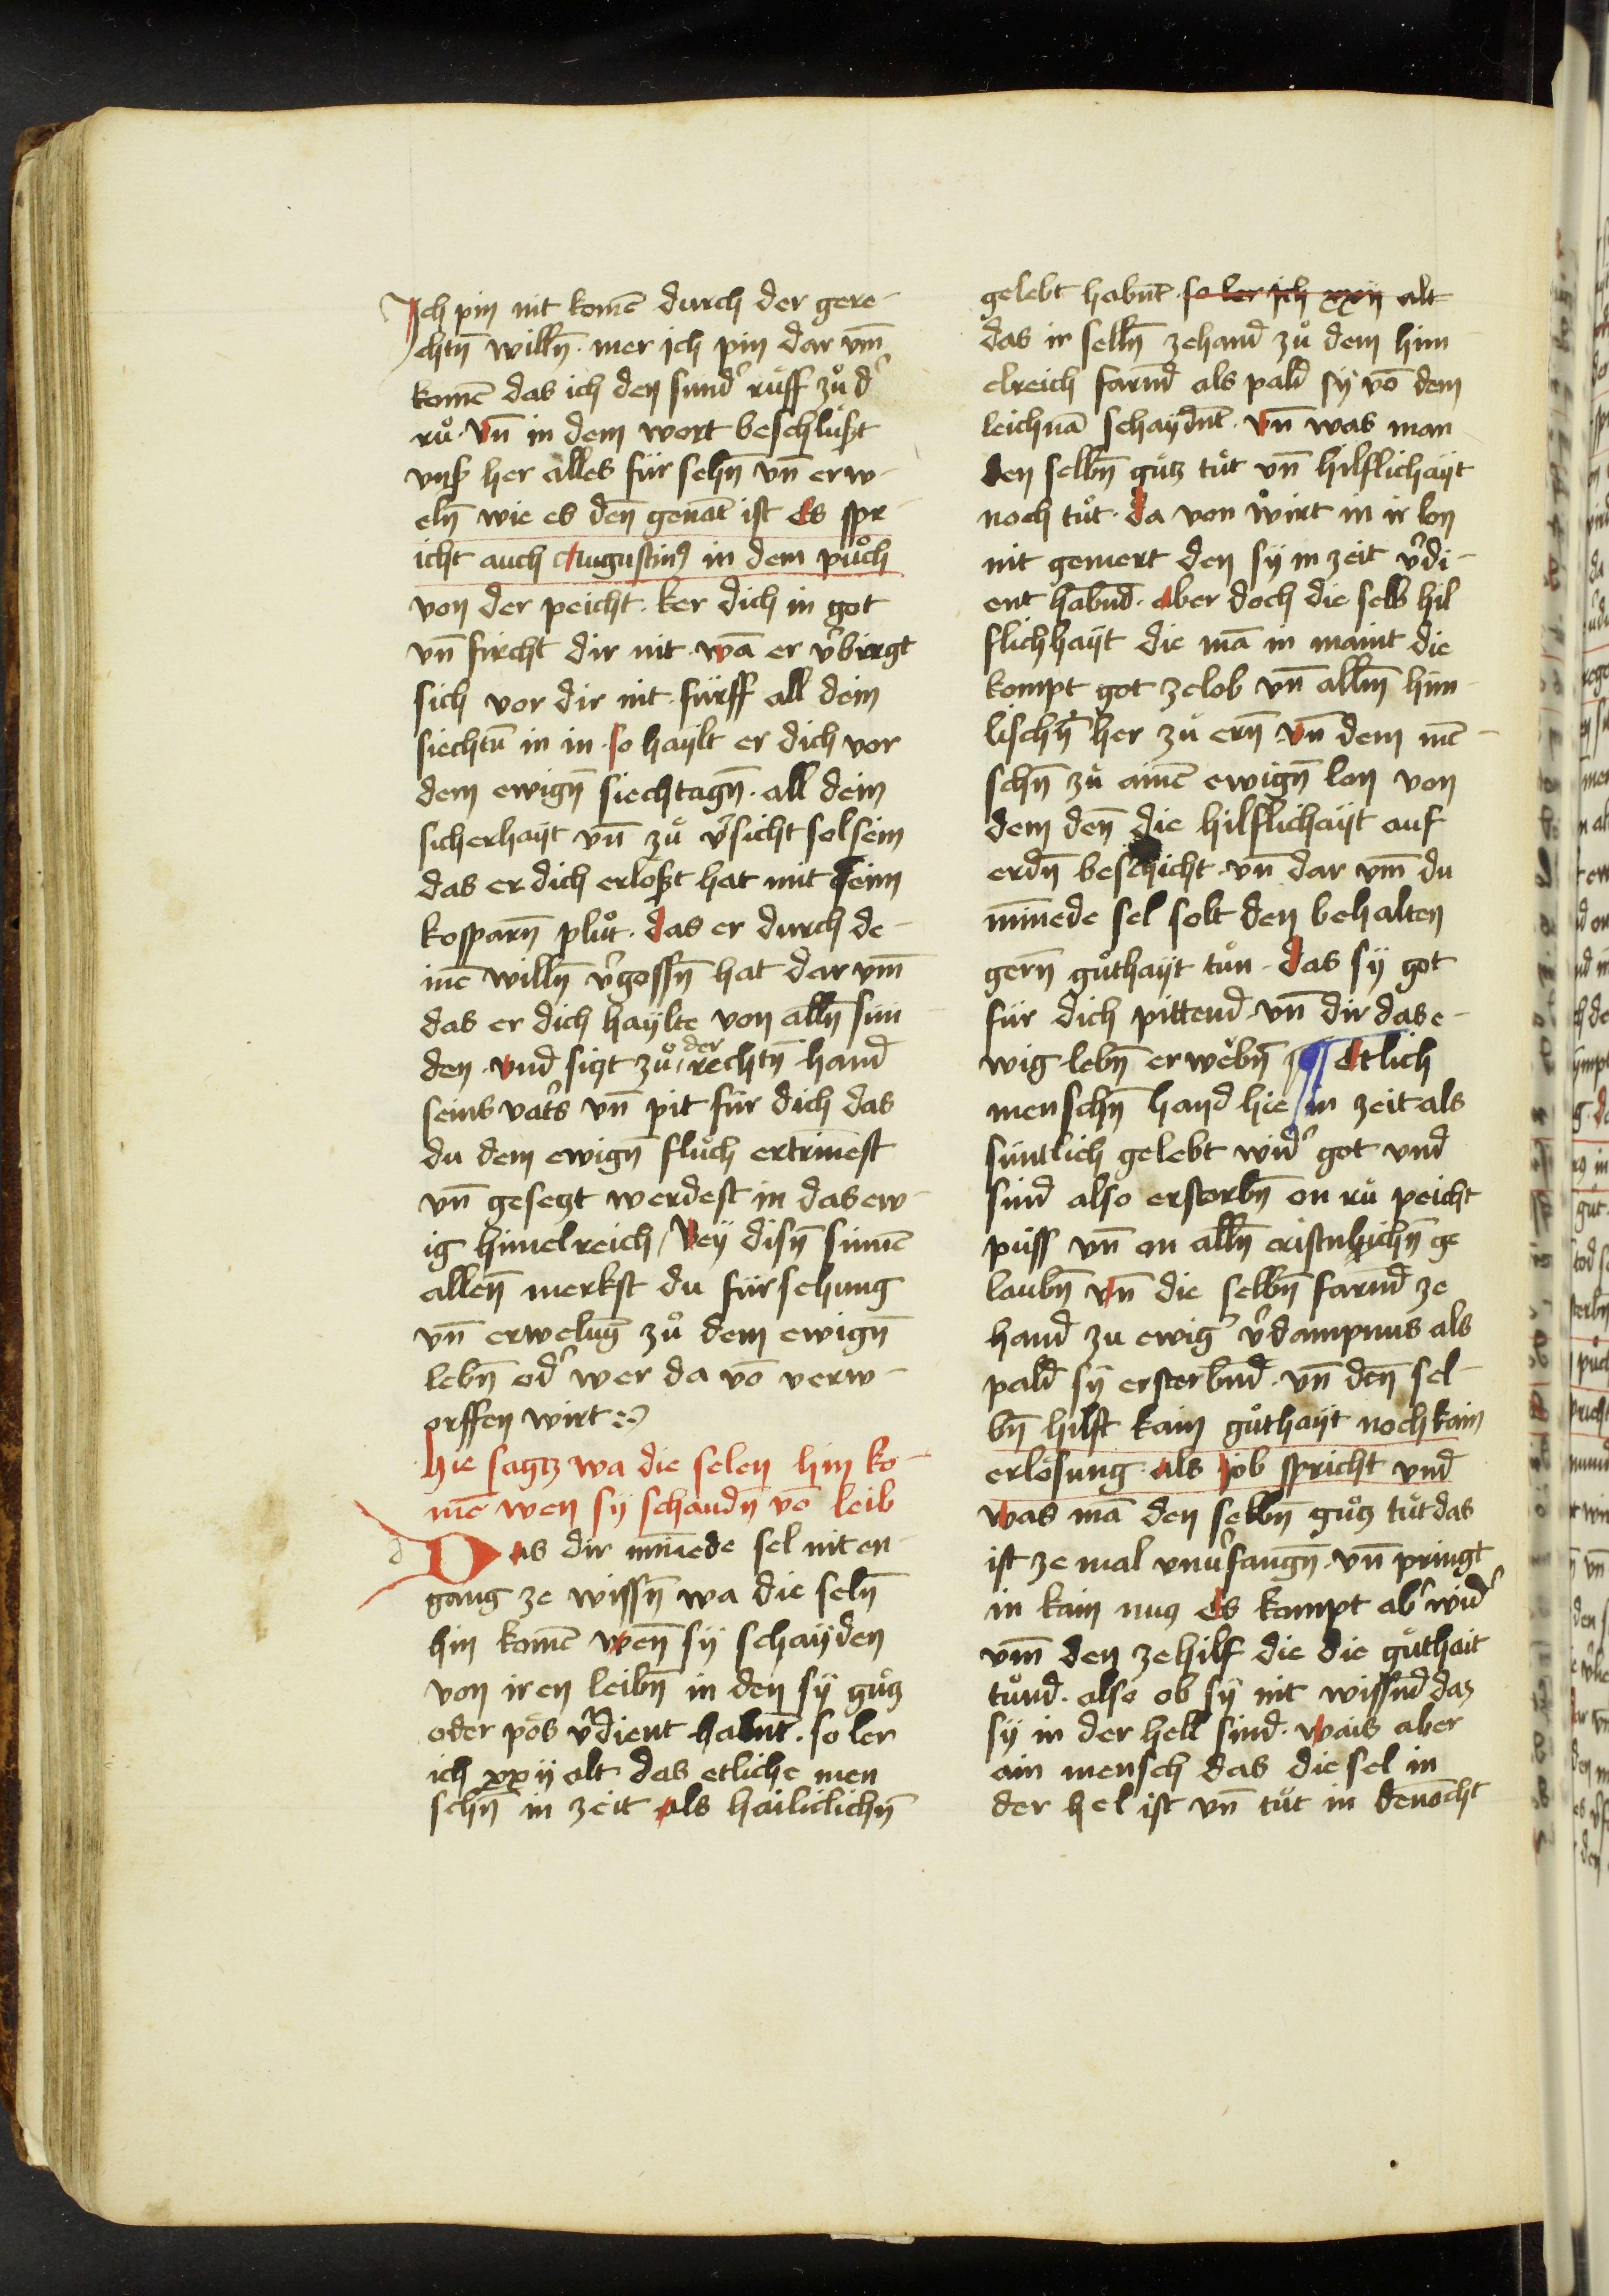 Ich pin nit komē durch der gere-
chtn̄ willn̄ · mer ich pin dar vm̄
komē das ich den sund᷑ ruͤff zuͦ d᷑
ruͦ · vn̄ in dem wort beschlußt
vnß her alles für sehn̄ vn̄ erw-
eln̄ wie es den̄ genāt ist Es spr-
icht auch Augustinꝰ in dem puͦch
von der peicht · ker dich in got
vn̄ fircht dir nit · wā er v᷑birgt
sich vor dir nit · fürff all dein
siechtū in in · so haÿlt er dich vor
dem ewign̄ siechtagn̄ · all dein
sicherhaÿt vn̄ zuͦ v᷑sicht sol sein
das er dich erloßt hat mit seim
kosparn̄ pluͦt · das er durch de-
inē willn̄ v᷑gossn̄ hat dar vm̄
das er dich haÿlte von alln̄ sün
den · vnd sizt zuͦ der rechtn̄ hand
seins vat᷑s vn̄ pit für dich das
du dem ewign̄ fluͦch ertrinēst
vn̄ gesezt werdest in das ew-
ig himelreich / Beÿ disn̄ sinnē
allen̄ merkst du fürsehung
vn̄ erwelūg zuͦ dem ewign̄
lebn̄ od᷑ wer da vō verw-
orffen wirt
hie sagtz wa die selen hin ko-
mē wen sÿ schaidn̄ vō leib
d
Das dir minnēde sel nit en-
gang ze wissn̄ wa die seln̄
hin komē wen̄ sÿ schaÿden
von iren leibn̄ in den sÿ guͦtz
oder poͤs v᷑dient habnt̄ · so ler
ich xxij alt das etliche men
schn̄ in zeit als hailiclichn̄
gelebt habnt̄ · so ler ich xxij alt
das ir selln̄ zehand zuͦ dem him
elreich farnd̄ als pald sÿ vō dem
leichnā schaÿdnt̄ · vn̄ was man
den selbn̄ guͦtz tuͦt vn̄ hilflichaÿt
noch tuͦt · da von wirt in ir lon
nit gemert den sÿ in zeit v᷑di-
ent habnd̄ · aber doch die selb hil
flichhaÿt die mā in maint die
kompt got zelob vn̄ allm̄ him-
lischn̄ her zuͦ ern̄ vn̄ dem mē-
schn̄ zuͦ ainē ewign̄ lon von
dem den̄ die hilflichaÿt auf
erdn̄ beschicht · vn̄ dar vm̄ du
minnēde sel solt den behalten
gern̄ guͦthaÿt tuͦn · das sÿ got
für dich pittend · vn̄ dir das e-
wig lebn̄ erwebn̄ ¶ Etlich
menschn̄ hand hie in zeit als
süntlich gelebt wid᷑ got vnd
sind also erstorbn̄ on ruͦ peicht
puͦss vn̄ on alln̄ cristnlichn̄ ge
laubn̄ vn̄ die selbn̄ farnd̄ ze
hand zu ewig᷑ v᷑dampnus als
pald sÿ ersterbnd̄ · vn̄ den̄ sel-
bn̄ hilft kain guͦthaÿt noch kain
erlösung · als Job spricht vnd
was mā den selbn̄ guͦtz tuͦt das
ist ze mal vnv᷑fangn̄ · vn̄ pringt
in kain nutz Es kompt ab᷑ wid᷑
vm̄ den zehilf die die guͦthait
tuͦnd · also ob sÿ nit wissnd̄ daz
sÿ in der hell sind · wais aber
ain mensch das die sel in
der hel ist vn̄ tuͦt in dennōcht